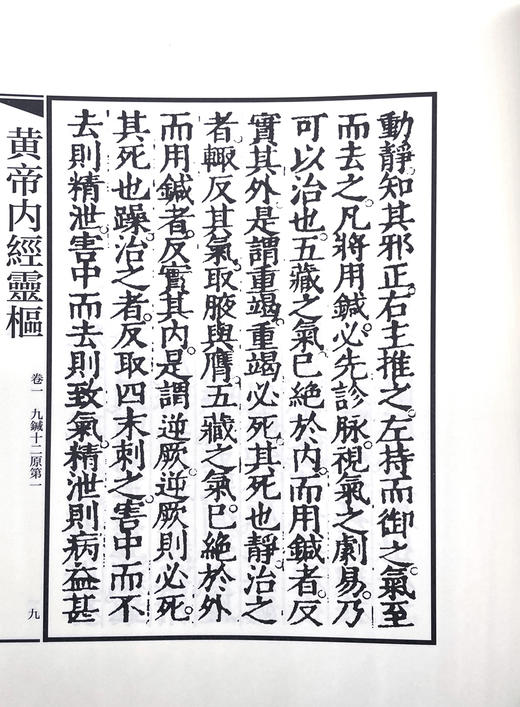 動靜。知其邪正。右主推之。左持而御之。氣至
而去之。凡將用鍼。必先診脉。視氣之劇易。乃
可以治也。五藏之氣已絕於內。而用鍼者。反
實其外。是謂重竭。重竭必死。其死也靜。治之
者。輙反其氣。取腋與膺。五藏之氣。已絕於外
而用鍼者。反實其內。是謂逆厥。逆厥則必死。
其死也躁。治之者。反取四末。刺之害中而不
去則精泄。害中而去則致氣。精泄則病益甚
黃帝内經靈樞
卷一 九鍼十二原第一
九